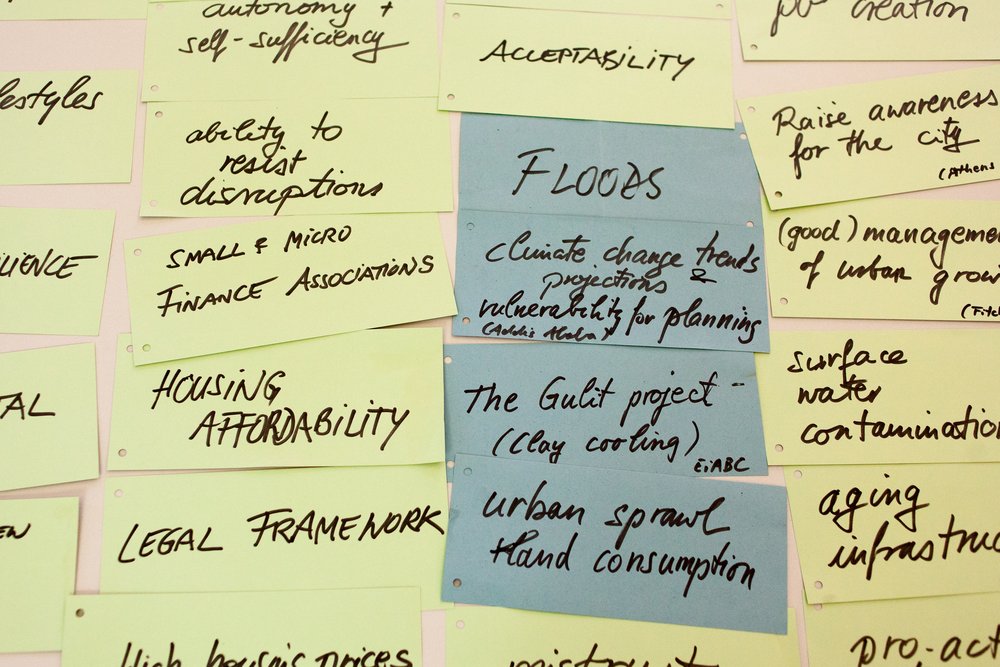 lestyles
LIENCE
TAL
EW
autonomy +
self-sufficiency
ability to
resist
disruptions
SMALL & MICRO
FINANCE ASSOCIATIONS
HOUSING
AFFORDABILITY
LEGAL FRAMEWORK
High housing prices
ACCEPTABILITY
FLOODS
climate change trends
projections &
vulnerability for planning
(Addis Ababa)
The Gulit project -
(Clay cooling)
EiABC
urban sprawl
land consumption
mistrust
job creation
Raise awareness
for the city
(Athens
(good) manageme
of urban grow
(Fitch
surface
water
contamination
aging
infrastruc
pro-act